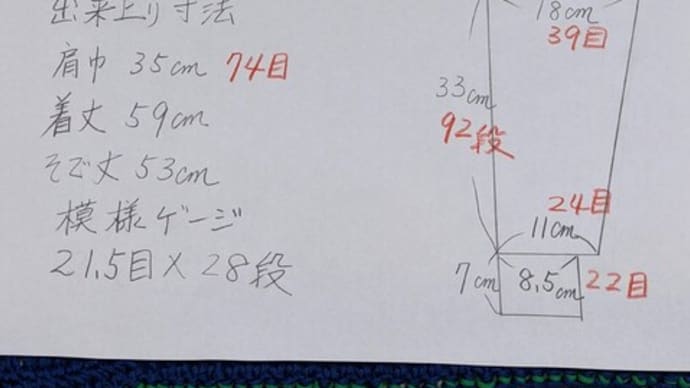 出来上り寸法
肩巾 35cm 74目
着丈 59cm
そで丈 53cm
模様ゲージ
21.5目×28段
18cm
39目
33cm
92段
24目
11cm
7cm 8.5cm 22目